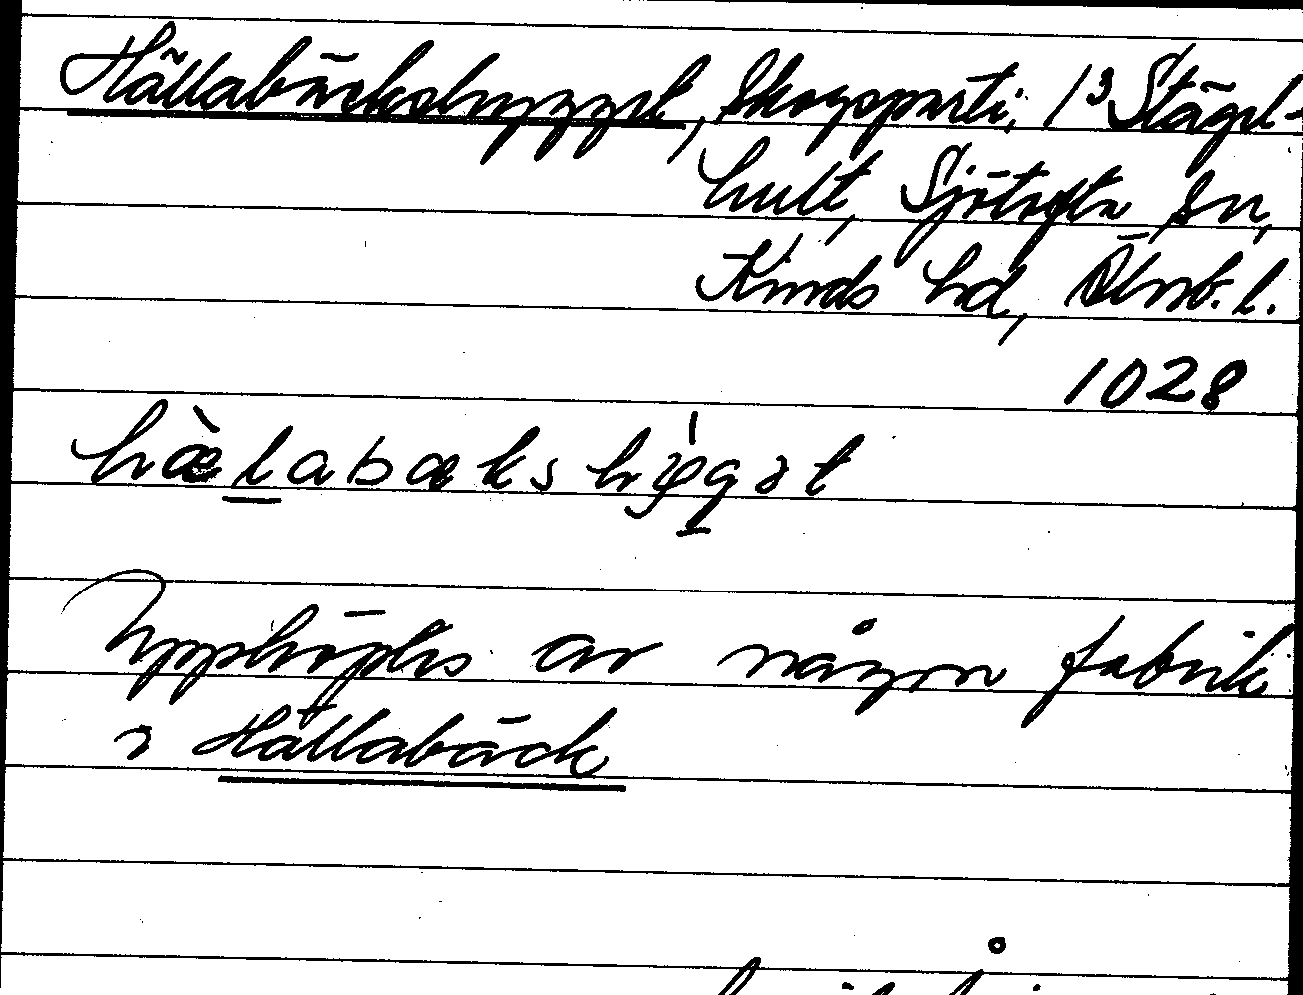 Hällabäckshygget, Skogsparti, 1³ Stägel-
hult, Sjötofta sn,
Kinds hd, Älvsb. l.
1028
hæ̀labækshỳgət
Uppköptes av någon fabrik
i Hällabäck